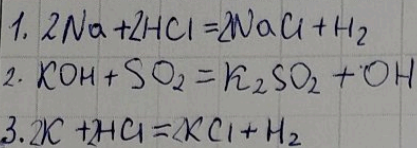 1. 2Na + 2HCl = 2NaCl + H₂
2. KOH + SO₂ = K₂SO₂ + OH
3. 2K + 2HCl = 2KCl + H₂